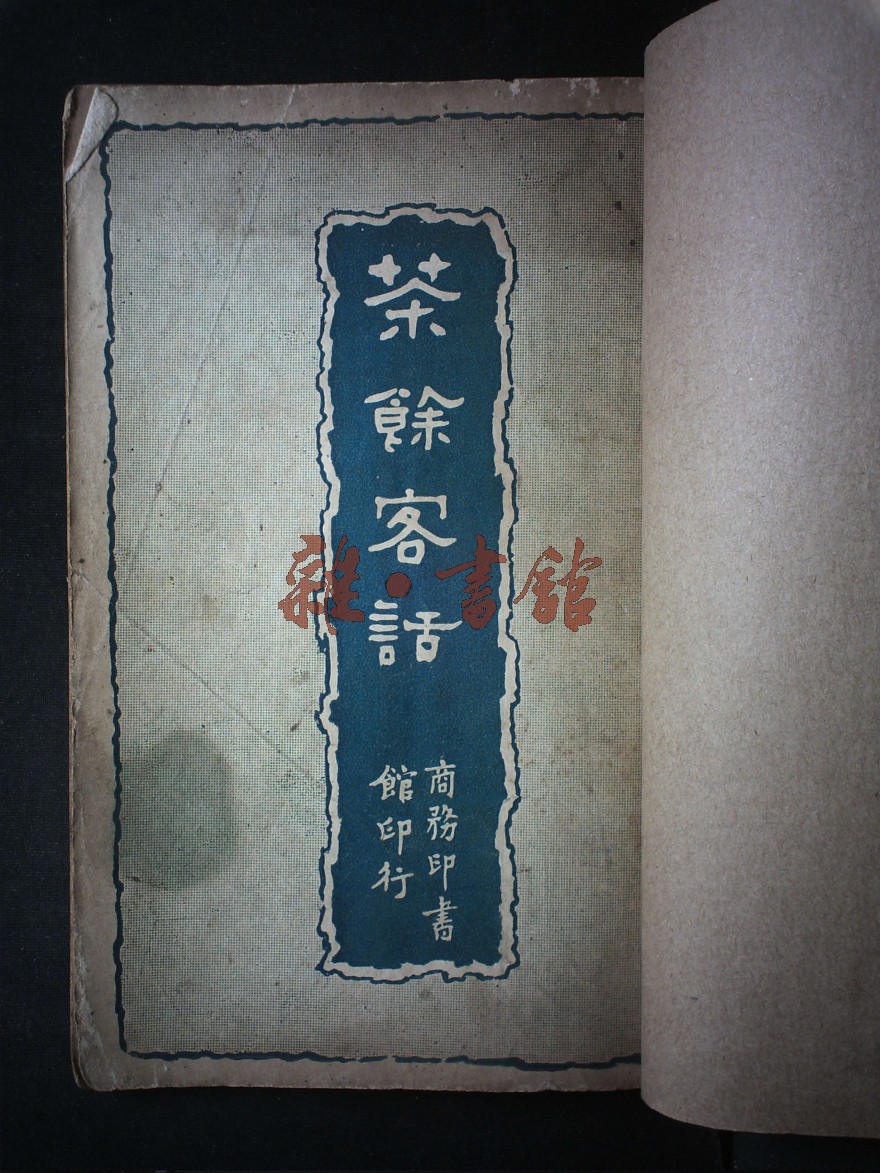 茶餘客話
商務印書
館印行
雜·書館